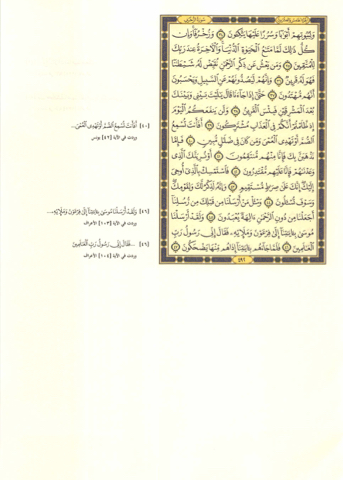 وَلِبُيُوتِهِمْ أَبْوَٰبًا وَسُرُرًا عَلَيْهَا يَتَّكِـُٔونَ ٣٤ وَزُخْرُفًا وَإِن
كُلُّ ذَٰلِكَ لَمَّا مَتَٰعُ ٱلْحَيَوٰةِ ٱلدُّنْيَا وَٱلْءَاخِرَةُ عِندَ رَبِّكَ
لِلْمُتَّقِينَ ٣٥ وَمَن يَعْشُ عَن ذِكْرِ ٱلرَّحْمَٰنِ نُقَيِّضْ لَهُۥ شَيْطَٰنًا
فَهُوَ لَهُۥ قَرِينٌ ٣٦ وَإِنَّهُمْ لَيَصُدُّونَهُمْ عَنِ ٱلسَّبِيلِ وَيَحْسَبُونَ
أَنَّهُم مُّهْتَدُونَ ٣٧ حَتَّىٰٓ إِذَا جَآءَنَا قَالَ يَٰلَيْتَ بَيْنِى وَبَيْنَكَ
بُعْدَ ٱلْمَشْرِقَيْنِ فَبِئْسَ ٱلْقَرِينُ ٣٨ وَلَن يَنفَعَكُمُ ٱلْيَوْمَ
إِذ ظَّلَمْتُمْ أَنَّكُمْ فِى ٱلْعَذَابِ مُشْتَرِكُونَ ٣٩ أَفَأَنتَ تُسْمِعُ
ٱلصُّمَّ أَوْ تَهْدِى ٱلْعُمْىَ وَمَن كَانَ فِى ضَلَٰلٍ مُّبِينٍ ٤٠ فَإِمَّا
نَذْهَبَنَّ بِكَ فَإِنَّا مِنْهُم مُّنتَقِمُونَ ٤١ أَوْ نُرِيَنَّكَ ٱلَّذِى
وَعَدْنَٰهُمْ فَإِنَّا عَلَيْهِم مُّقْتَدِرُونَ ٤٢ فَٱسْتَمْسِكْ بِٱلَّذِىٓ أُوحِىَ
إِلَيْكَ إِنَّكَ عَلَىٰ صِرَٰطٍ مُّسْتَقِيمٍ ٤٣ وَإِنَّهُۥ لَذِكْرٌ لَّكَ وَلِقَوْمِكَ
وَسَوْفَ تُسْـَٔلُونَ ٤٤ وَسْـَٔلْ مَنْ أَرْسَلْنَا مِن قَبْلِكَ مِن رُّسُلِنَآ
أَجَعَلْنَا مِن دُونِ ٱلرَّحْمَٰنِ ءَالِهَةً يُعْبَدُونَ ٤٥ وَلَقَدْ أَرْسَلْنَا
مُوسَىٰ بِـَٔايَٰتِنَآ إِلَىٰ فِرْعَوْنَ وَمَلَإِي۟هِۦ فَقَالَ إِنِّى رَسُولُ رَبِّ
ٱلْعَٰلَمِينَ ٤٦ فَلَمَّا جَآءَهُم بِـَٔايَٰتِنَآ إِذَا هُم مِّنْهَا يَضْحَكُونَ ٤٧
[٤٠] أَفَأَنتَ تُسْمِعُ ٱلصُّمَّ أَوْ تَهْدِى ٱلْعُمْىَ...
وردت في الآية [٤٢] يونس
[٤٦] وَلَقَدْ أَرْسَلْنَا مُوسَىٰ بِـَٔايَٰتِنَآ إِلَىٰ فِرْعَوْنَ وَمَلَإِي۟هِۦ...
وردت في الآية [١٠٣] الأعراف
[٤٦] ...فَقَالَ إِنِّى رَسُولُ رَبِّ ٱلْعَٰلَمِينَ
وردت في الآية [١٠٤] الأعراف